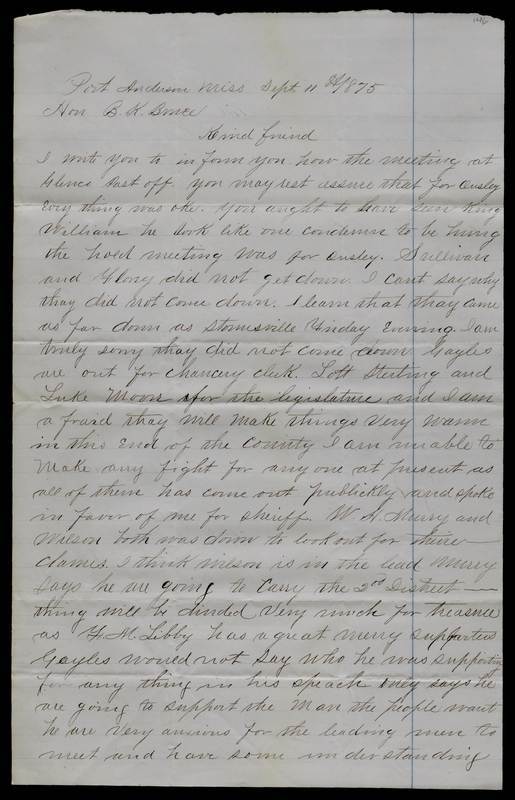 Port Anderson Miss Sept 11th /875
Hon B. K. Bruce
Kind friend
I writ you to in form you how the meeting at
Glenco Past off. you may rest assure that for Ousley
Evry thing was oke. You aught to have seen King
William he look like one condemn to be hung
the hold meeting was for Ousley. Sullivan
and did not get down. I cant say why
thay did not come down. I learn that thay came
as far down as Stonesville Friday Evening. I am
truly sorry thay did not come down Gayles
are out for chancery clerk. Lott Sterling and
Luke Moon for the legislature and I am
a fraid thay will make things very warm
in this End of the County I am unable to
make any fight for any one at present as
all of them has come out publickly and spoke
in favor of me for sheriff. W. H. Murry and
Wilson both was down to look out for there
Clames. I think wilson is in the lead Murry
says he are going to carry the 2nd District
thing will be divided very much for treasure
as Libby has a great merry supporters
Gayles would not say who he was supporting
for any thing in his speach only says he
are going to support the man the people want
he are very anxious for the leading men to
meet and have some understanding